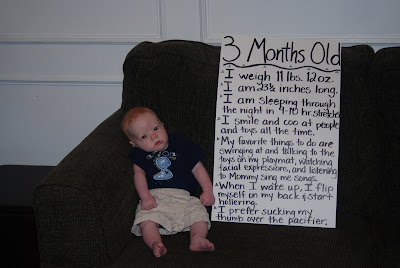 3 Months Old
I weigh 11 lbs. 12 oz.
I am 23¾ inches long.
I am sleeping through
the night in 9-10 hr stretches
I smile and coo at people
and toys all the time.
My favorite things to do are
swinging at and talking to the
toys on my playmat, watching
facial expressions, and listening
to Mommy sing me songs.
When I wake up, I flip
myself on my back & start
hollering.
I prefer sucking my
thumb over the pacifier.